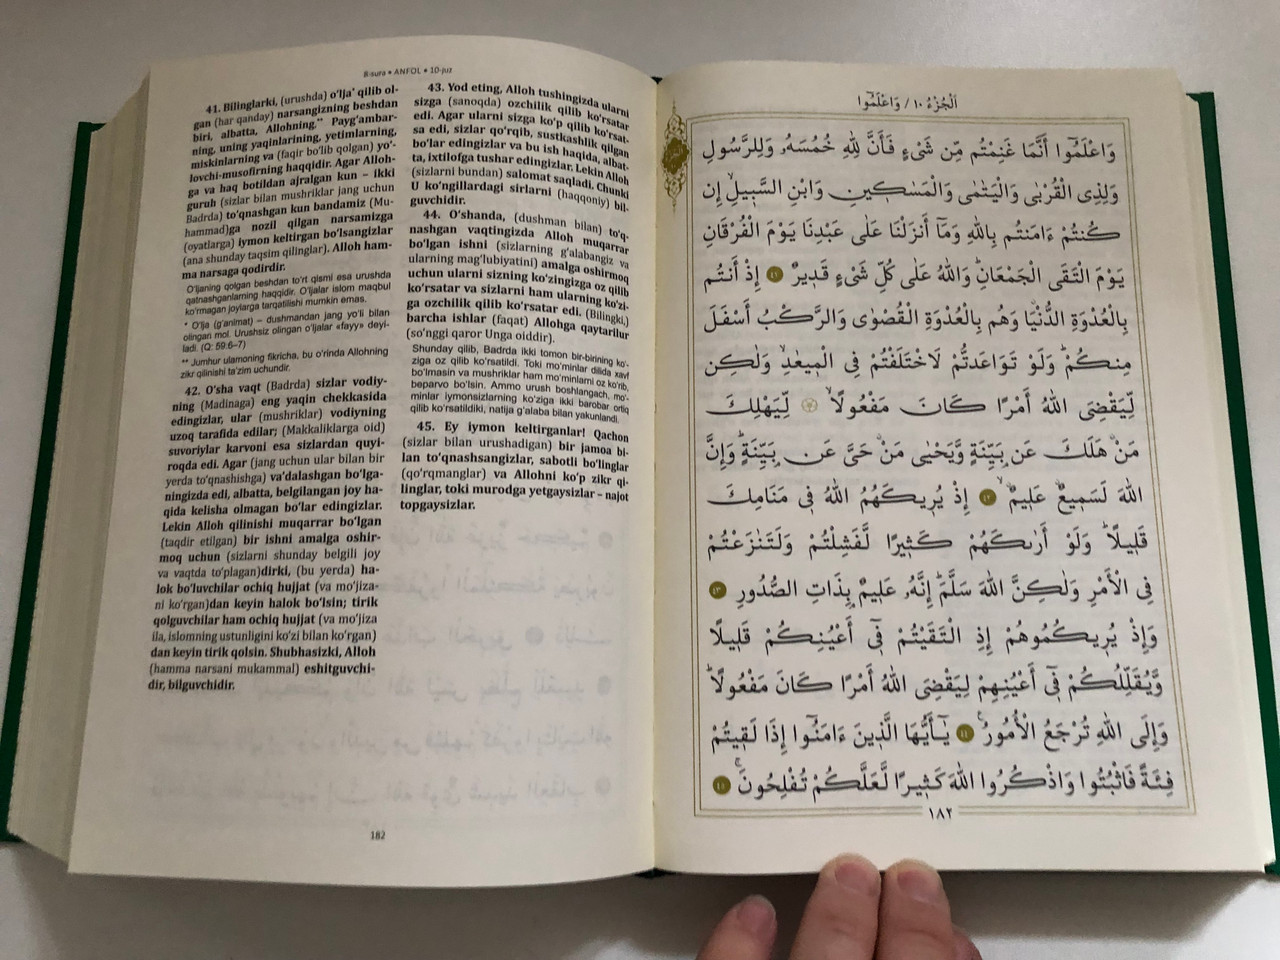 8-sura • ANFOL • 10-juz
41. Bilinglarki, (urushda) o‘lja* qilib ol-
gan (har qanday) narsangizning beshdan
biri, albatta, Allohning,** Payg‘ambar-
ning, uning yaqinlarining, yetimlarning,
miskinlarning va (faqir bo‘lib qolgan) yo‘-
lovchi-musofirning haqqidir. Agar Alloh-
ga va haq botildan ajralgan kun – ikki
guruh (sizlar bilan mushriklar jang uchun
Badrda) to‘qnashgan kun bandamiz (Mu-
hammad)ga nozil qilgan narsamizga
(oyatlarga) iymon keltirgan bo‘lsangizlar
(ana shunday taqsim qilinglar). Alloh ham-
ma narsaga qodirdir.
O‘ljaning qolgan beshdan to‘rt qismi esa urushda
qatnashganlarning haqqidir. O‘ljalar islom maqbul
ko‘rmagan joylarga tarqatilishi mumkin emas.
* O‘lja (g‘animat) – dushmandan jang yo‘li bilan
olingan mol. Urushsiz olingan o‘ljalar «fayy» deyi-
ladi. (Q: 59:6–7)
** Jumhur ulamoning fikricha, bu o‘rinda Allohning
zikr qilinishi ta’zim uchundir.
42. O‘sha vaqt (Badrda) sizlar vodiy-
ning (Madinaga) eng yaqin chekkasida
edingizlar, ular (mushriklar) vodiyning
uzoq tarafida edilar; (Makkaliklarga oid)
suvoriylar karvoni esa sizlardan quyi-
roqda edi. Agar (jang uchun ular bilan bir
yerda to‘qnashishga) va’dalashgan bo‘lga-
ningizda edi, albatta, belgilangan joy ha-
qida kelisha olmagan bo‘lar edingizlar.
Lekin Alloh qilinishi muqarrar bo‘lgan
(taqdir etilgan) bir ishni amalga oshir-
moq uchun (sizlarni shunday belgili joy
va vaqtda to‘plagan)dirki, (bu yerda) ha-
lok bo‘luvchilar ochiq hujjat (va mo‘jiza-
ni ko‘rgan)dan keyin halok bo‘lsin; tirik
qolguvchilar ham ochiq hujjat (va mo‘jiza
ila, islomning ustunligini ko‘zi bilan ko‘rgan)
dan keyin tirik qolsin. Shubhasizki, Alloh
(hamma narsani mukammal) eshitguvchi-
dir, bilguvchidir.
43. Yod eting, Alloh tushingizda ularni
sizga (sanoqda) ozchilik qilib ko‘rsatar
edi. Agar ularni sizga ko‘p qilib ko‘rsat-
sa edi, sizlar qo‘rqib, sustkashlik qilgan
bo‘lar edingizlar va bu ish haqida, albat-
ta, ixtilofga tushar edingizlar. Lekin Alloh
(sizlarni bundan) salomat saqladi. Chunki
U ko‘ngillardagi sirlarni (haqqoniy) bil-
guvchidir.
44. O‘shanda, (dushman bilan) to‘q-
nashgan vaqtingizda Alloh muqarrar
bo‘lgan ishni (sizlarning g‘alabangiz va
ularning mag‘lubiyatini) amalga oshirmoq
uchun ularni sizning ko‘zingizga oz qilib
ko‘rsatar va sizlarni ham ularning ko‘zi-
ga ozchilik qilib ko‘rsatar edi. (Bilingki,)
barcha ishlar (faqat) Allohga qaytarilur
(so‘nggi qaror Unga oiddir).
Shunday qilib, Badrda ikki tomon bir-birining ko‘-
ziga oz qilib ko‘rsatildi. Toki mo‘minlar dilida xavf
bo‘lmasin va mushriklar ham mo‘minlarni oz ko‘rib,
beparvo bo‘lsin. Ammo urush boshlangach, mo‘-
minlar iymonsizlarning ko‘ziga ikki barobar ortiq
qilib ko‘rsatildiki, natija g‘alaba bilan yakunlandi.
45. Ey iymon keltirganlar! Qachon
(sizlar bilan urushadigan) bir jamoa bi-
lan to‘qnashsangizlar, sabotli bo‘linglar
(qo‘rqmanglar) va Allohni ko‘p zikr qi-
linglar, toki murodga yetgaysizlar – najot
topgaysizlar.
182
اَلْجُزْءُ ١٠ / وَاعْلَمُوٓا
وَاعْلَمُوٓا أَنَّمَا غَنِمْتُم مِّن شَىْءٍ فَأَنَّ لِلّٰهِ خُمُسَهُۥ وَلِلرَّسُولِ
وَلِذِى الْقُرْبٰى وَالْيَتٰمٰى وَالْمَسٰكِينِ وَابْنِ السَّبِيلِۙ إِن
كُنتُمْ ءَامَنتُم بِاللّٰهِ وَمَآ أَنزَلْنَا عَلٰى عَبْدِنَا يَوْمَ الْفُرْقَانِ
يَوْمَ الْتَقَى الْجَمْعَانِۗ وَاللّٰهُ عَلٰى كُلِّ شَىْءٍ قَدِيرٌ ٤١ إِذْ أَنتُم
بِالْعُدْوَةِ الدُّنْيَا وَهُم بِالْعُدْوَةِ الْقُصْوٰى وَالرَّكْبُ أَسْفَلَ
مِنكُمْۗ وَلَوْ تَوَاعَدتُّمْ لَاخْتَلَفْتُمْ فِى الْمِيعٰدِۙ وَلٰكِن
لِّيَقْضِىَ اللّٰهُ أَمْرًا كَانَ مَفْعُولًاۙ لِّيَهْلِكَ
مَنْ هَلَكَ عَن بَيِّنَةٍ وَيَحْيٰى مَنْ حَىَّ عَن بَيِّنَةٍۗ وَإِنَّ
اللّٰهَ لَسَمِيعٌ عَلِيمٌۙ ٤٢ إِذْ يُرِيكَهُمُ اللّٰهُ فِى مَنَامِكَ
قَلِيلًاۗ وَلَوْ أَرٰىكَهُمْ كَثِيرًا لَّفَشِلْتُمْ وَلَتَنٰزَعْتُمْ
فِى الْأَمْرِ وَلٰكِنَّ اللّٰهَ سَلَّمَۗ إِنَّهُۥ عَلِيمٌۢ بِذَاتِ الصُّدُورِ ٤٣
وَإِذْ يُرِيكُمُوهُمْ إِذِ الْتَقَيْتُمْ فِىٓ أَعْيُنِكُمْ قَلِيلًا
وَّيُقَلِّلُكُمْ فِىٓ أَعْيُنِهِمْ لِيَقْضِىَ اللّٰهُ أَمْرًا كَانَ مَفْعُولًاۗ
وَإِلَى اللّٰهِ تُرْجَعُ الْأُمُورُ ٤٤ يَٰٓأَيُّهَا الَّذِينَ ءَامَنُوٓا إِذَا لَقِيتُمْ
فِئَةً فَاثْبُتُوا وَاذْكُرُوا اللّٰهَ كَثِيرًا لَّعَلَّكُمْ تُفْلِحُونَۚ ٤٥
١٨٢